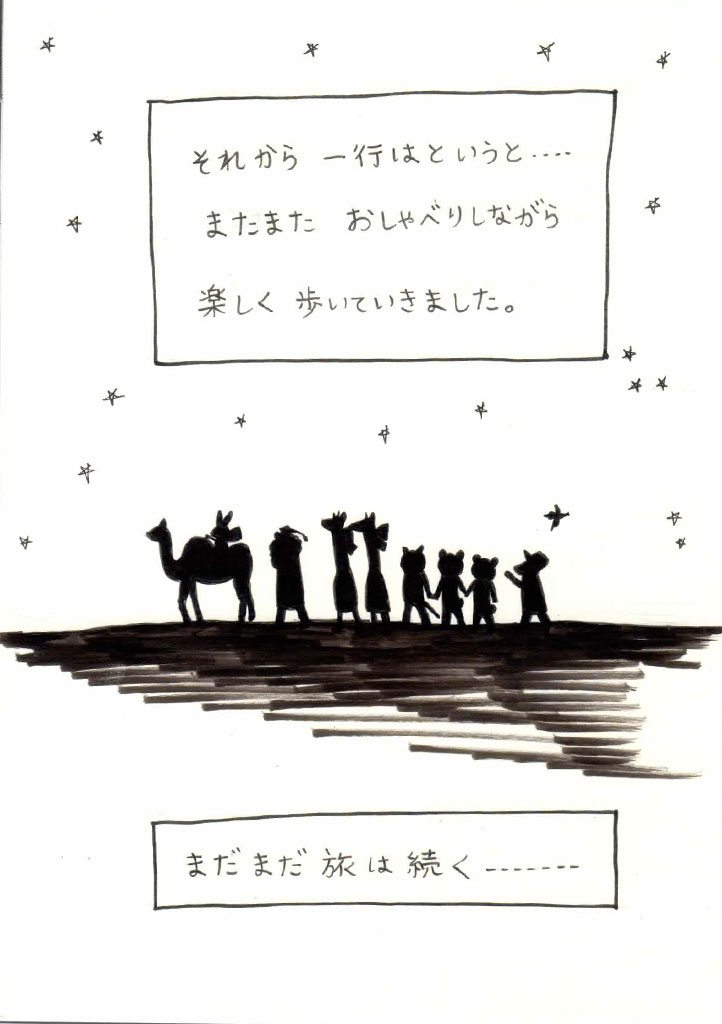 それから 一行はというと‥‥
またまた おしゃべりしながら
楽しく 歩いていきました。
まだまだ 旅は続く-------